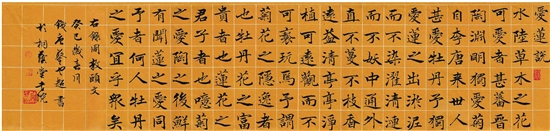 愛蓮說
水陸草木之花
可愛者甚蕃晉
陶淵明獨愛菊
自李唐來世人
甚愛牡丹予獨
愛蓮之出淤泥
而不染濯清漣
而不妖中通外
直不蔓不枝香
遠益清亭亭淨
植可遠觀而不
可褻玩焉予謂
菊花之隱逸者
也牡丹花之富
貴者也蓮花之
君子者也噫菊
之愛陶之後鮮
有聞蓮之愛同
予者何人牡丹
之愛宜乎衆矣
右錄周敦頤文
癸巳歲
超書